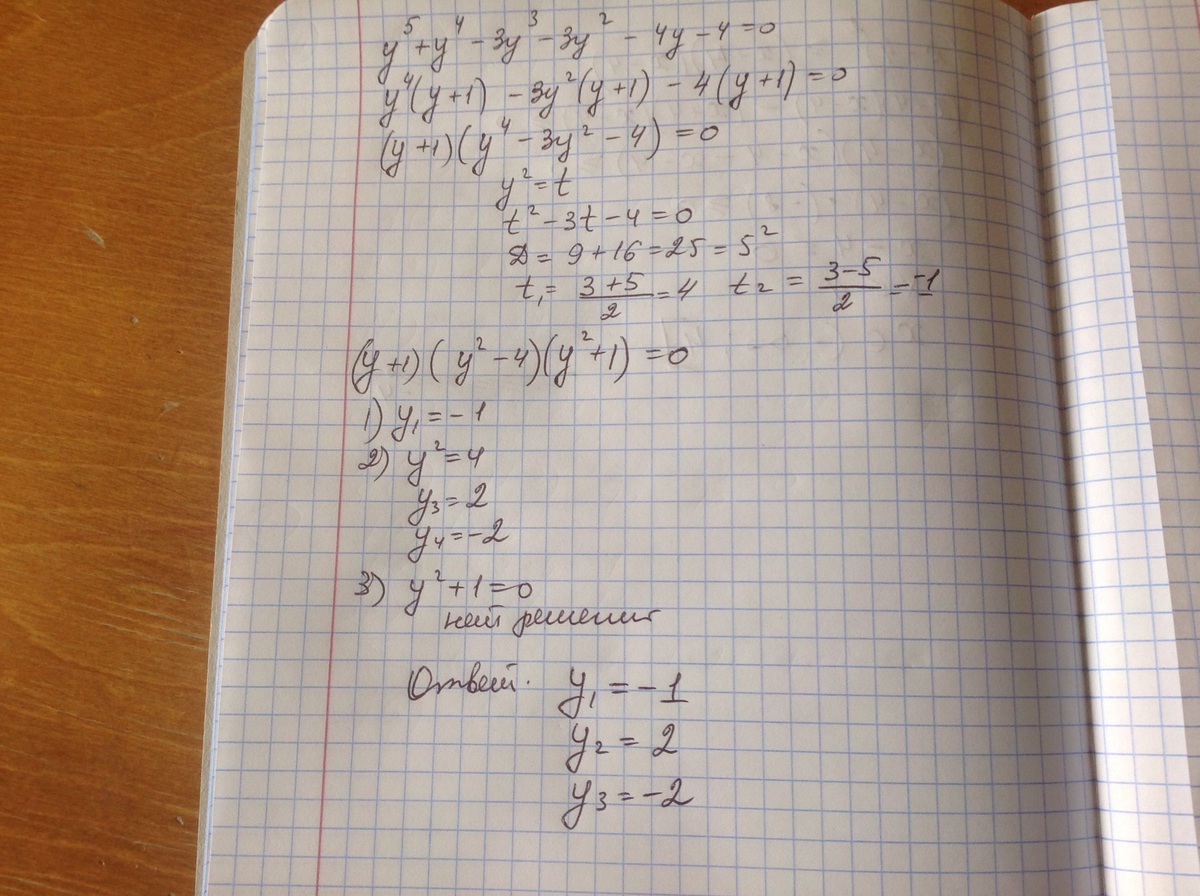 y⁵+y⁴-3y³-3y²-4y-4=0
y⁴(y+1)-3y²(y+1)-4(y+1)=0
(y+1)(y⁴-3y²-4)=0
y²=t
t²-3t-4=0
D=9+16=25=5²
t₁=(3+5)/2=4 t₂=(3-5)/2=-1
(y+1)(y²-4)(y²+1)=0
1) y₁=-1
2) y²=4
y₃=2
y₄=-2
3) y²+1=0
нет решения
Ответ. y₁=-1
y₂=2
y₃=-2